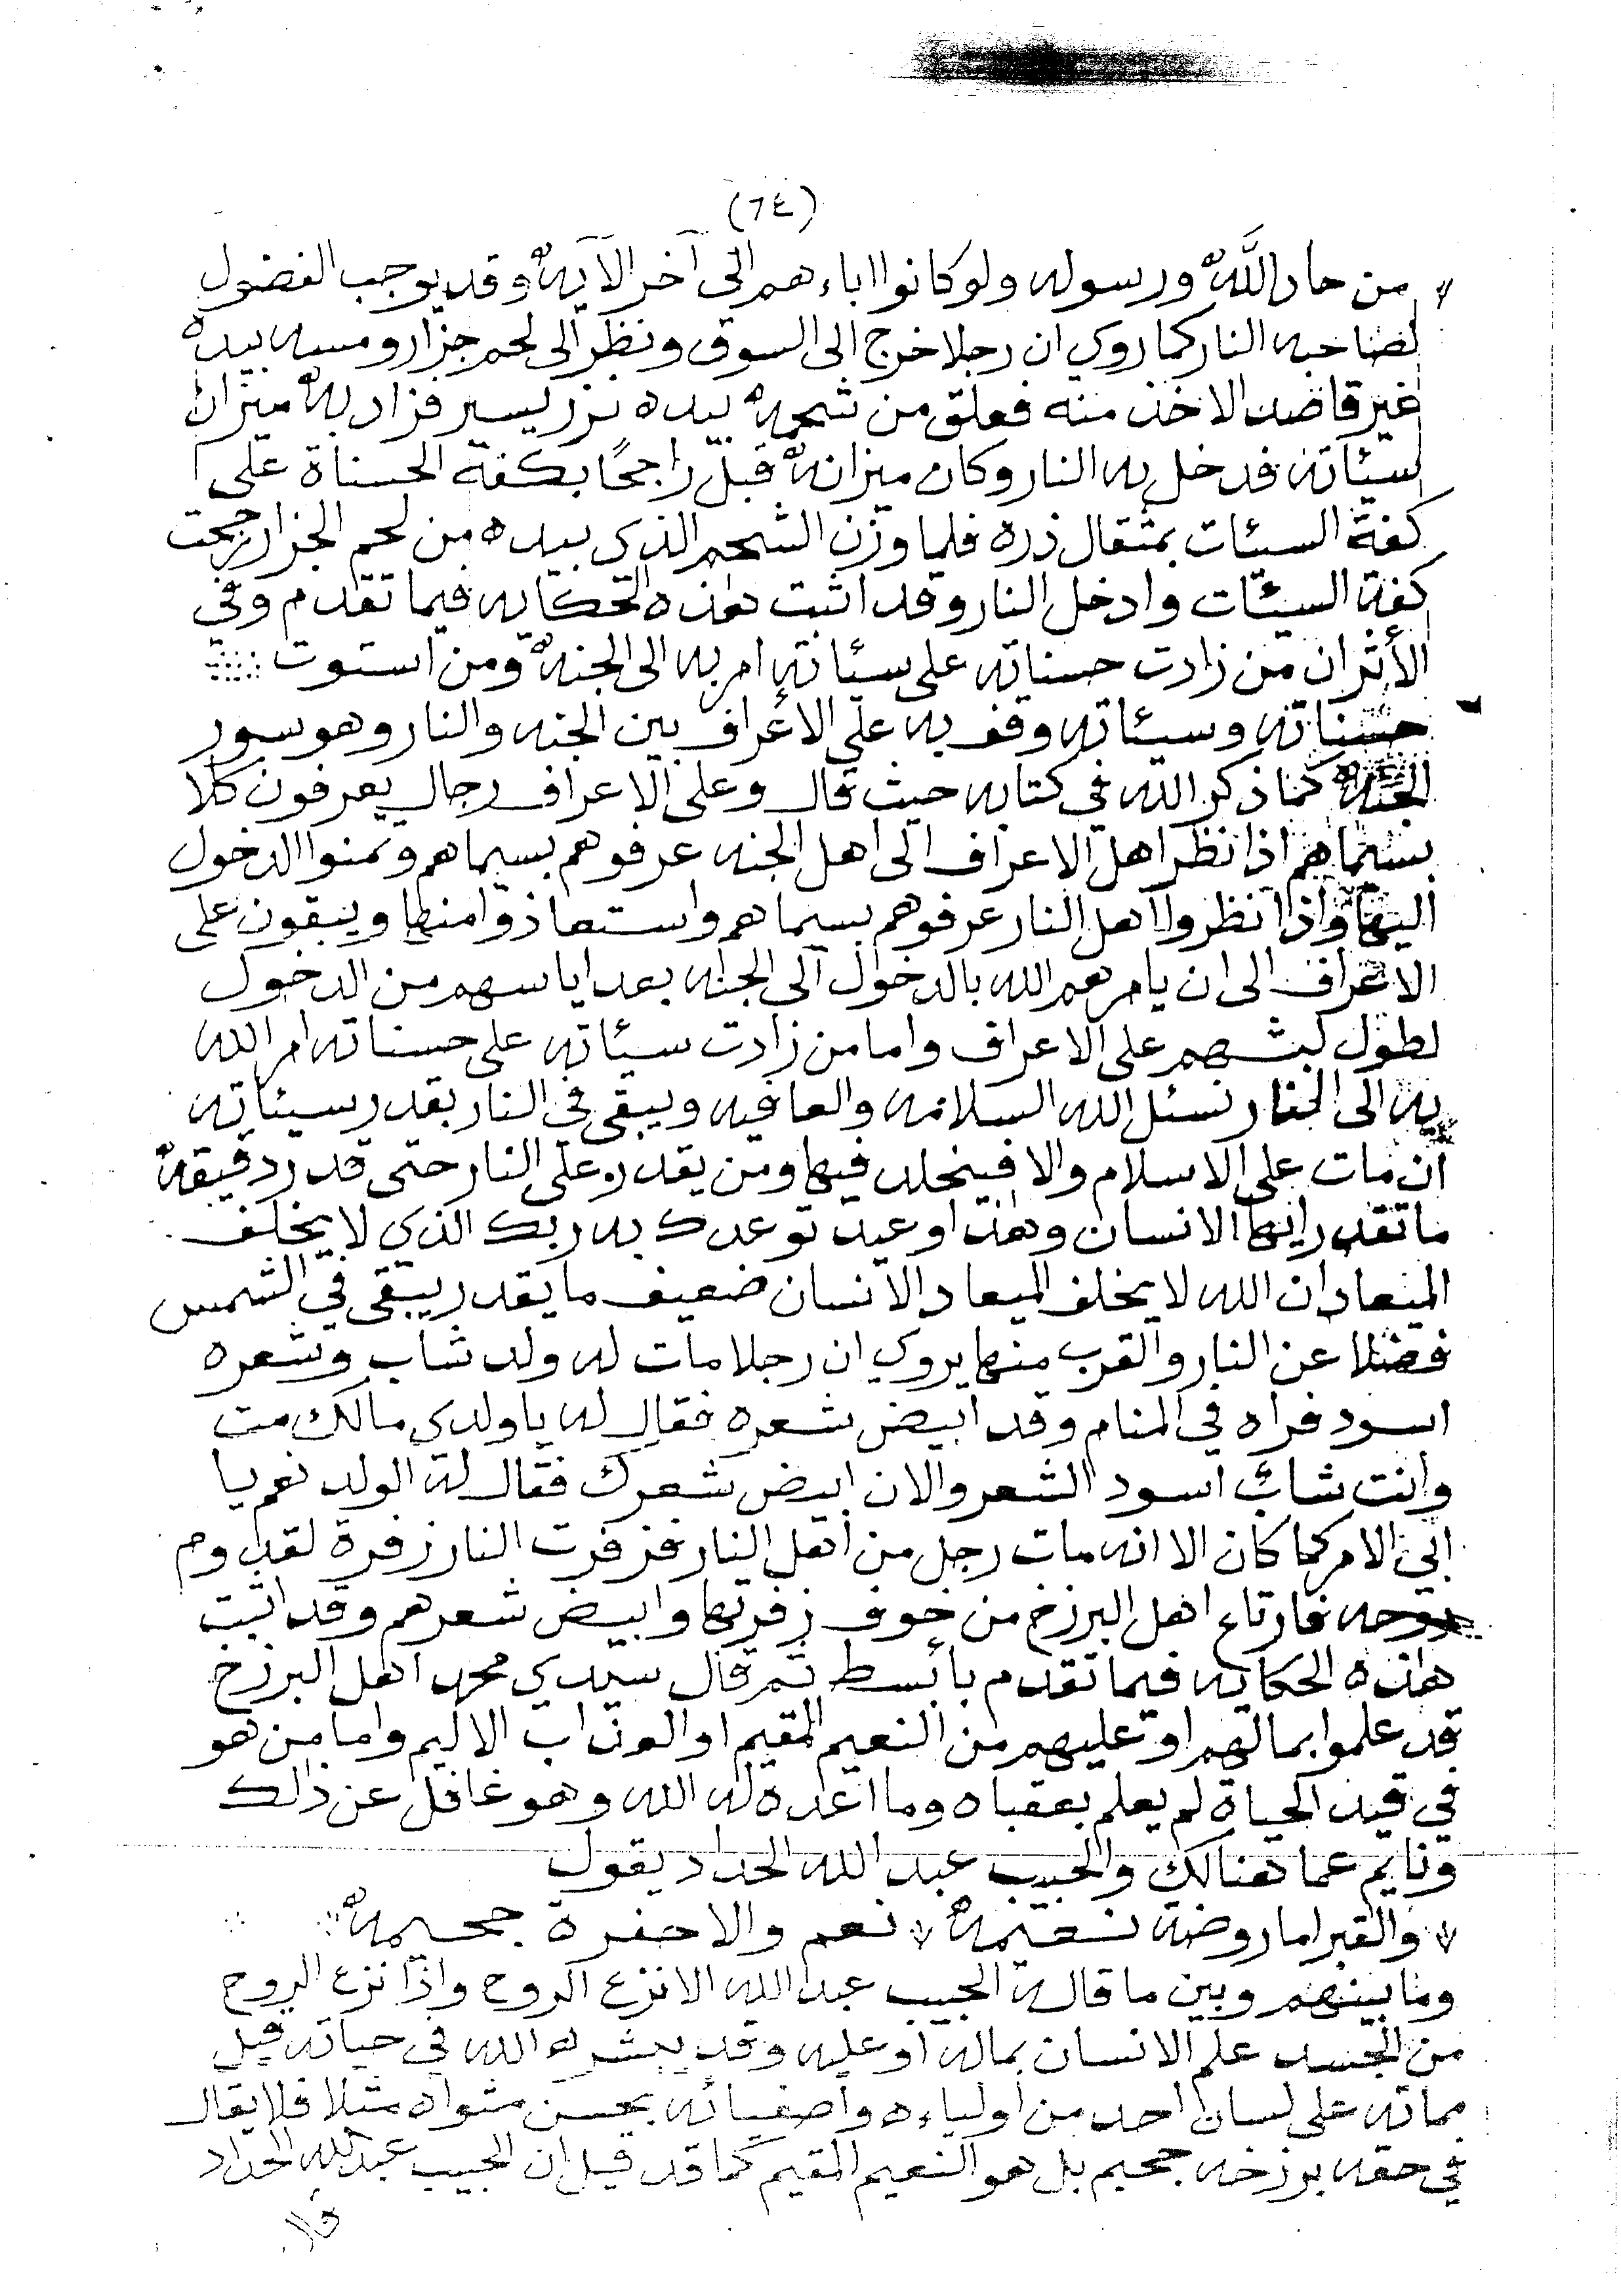 (٦٤)
من حاد اللّٰه ورسوله ولو كانوا اباءهم الى آخر الآيه وقد يوجب الفضول
لصاحبه النار كما روي ان رجلا خرج الى السوق ونظر الى لحم جزار ومسه بيده
غير قاصد الاخذ منه فعلق من شحمه بيده نزر يسير فزاد به ميزان
سيئاته فدخل به النار وكان ميزانه قبل راجحًا بكفة الحسناة على
كفة السيئات بمثقال ذره فلما وزن الشحم الذي بيده من لحم الجزار رجحت
كفة السيئات وادخل النار وقد اثبت هذه الحكايه فيما تقدم وفي
الأثر ان من زادت حسناته على سيئاته امر به الى الجنه ومن استوت
حسناته وسيئاته وقف به على الاعراف بين الجنه والنار وهو سور
الجنه كما ذكر الله في كتابه حيث قال وعلى الاعراف رجال يعرفون كلا
بسيماهم اذا نظر اهل الاعراف الى اهل الجنه عرفوهم بسيماهم وتمنوا الدخول
اليها واذا نظروا اهل النار عرفوهم بسيماهم واستعاذوا منها ويبقون على
الاعراف الى ان يامرهم الله بالدخول الى الجنه بعد اياسهم من الدخول
لطول لبثهم على الاعراف واما من زادت سيئاته على حسناته امر الله
به الى النار نسئل الله السلامه والعافيه ويبقى في النار بقدر سيئاته
ان مات على الاسلام والا فيخلد فيها ومن يقدره على النار حتى قدر دقيقه
ما تقدرايها الانسان وهذا وعيد توعدك به ربك الذي لا يخلف
الميعاد ان الله لا يخلف الميعاد الانسان ضعيف ما يقدر يبقى في الشمس
فضلا عن النار والقرب منها يروي ان رجلا مات له ولد شاب وشعره
اسود فراه في المنام وقد ابيض شعره فقال له يا ولدي مالك مت
وانت شاب اسود الشعر والان ابيض شعرك فقال له الولد نعم يا
ابي الامر كما كان الا انه مات رجل من اهل النار فزفرت النار زفرة لقدوم
روحه فارتاع اهل البرزخ من خوف زفرتها وابيض شعرهم وقد اثبت
هذه الحكايه فيما تقدم بأبسط ثم قال سيدي محمد اهل البرزخ
قد علموا بمالهم او عليهم من النعيم المقيم او العذاب الاليم واما من هو
في قيد الحياة لم يعلم بعقباه وما اعده له الله وهو غافل عن ذلك
ونايم عما هنالك والحبيب عبد الله الحداد يقول
والقبر اما روضة نعيمه نعم والا حفرة جحيمه
وما بينهم وبين ما قاله الحبيب عبد الله الا نزع الروح واذا نزع الروح
من الجسد علم الانسان بماله او عليه وقد يبشره الله في حياته قبل
مماته على لسان احد من اولياءه واصفيائه بحسن مثواه مثلا فلا يقال
في حقه برزخه جحيم بل هو النعيم المقيم كما قد قيل ان الحبيب عبد الله الحداد
قال